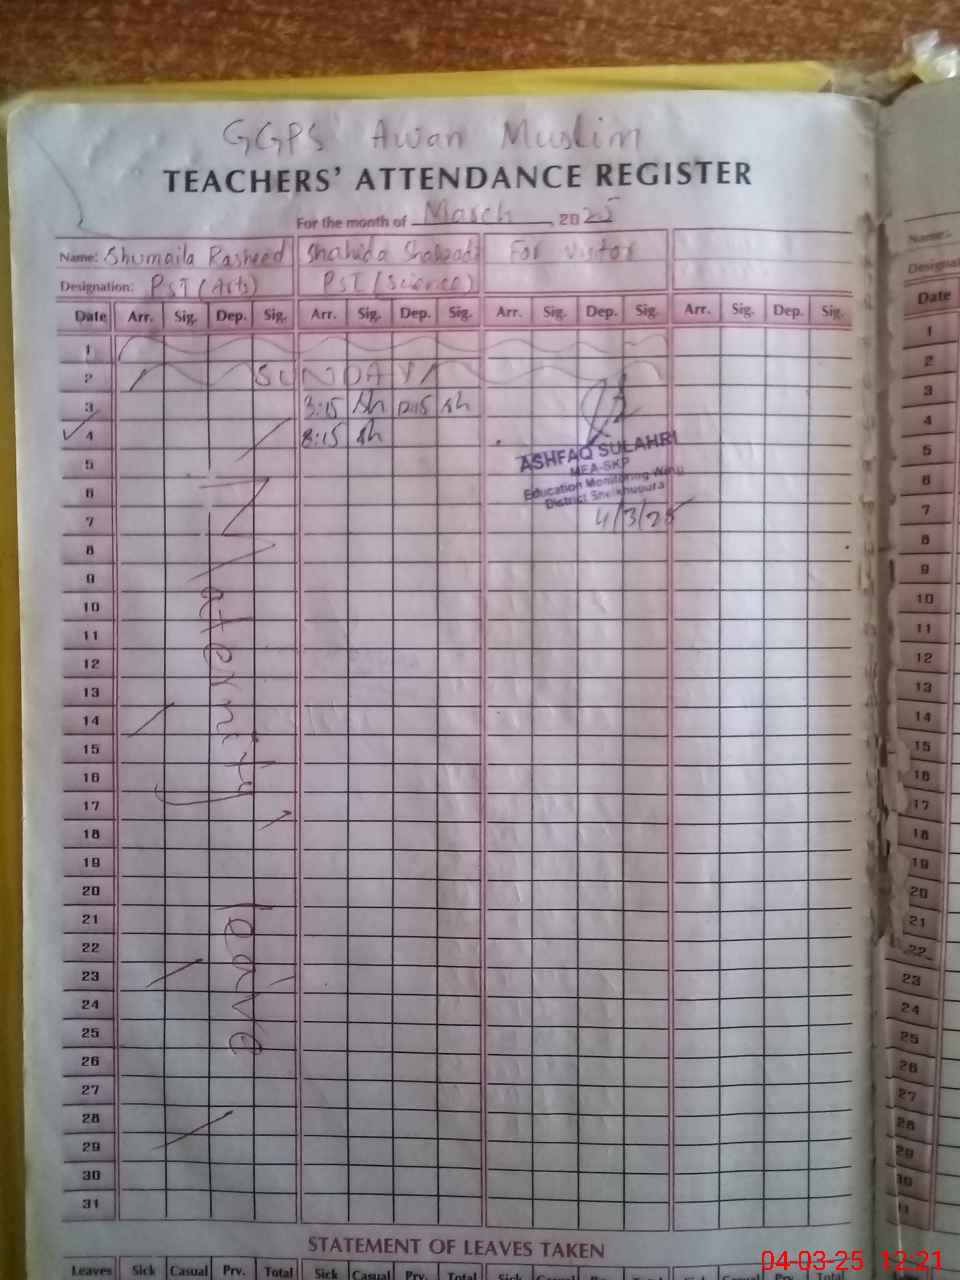 GGPS Awan Muslim
TEACHERS' ATTENDANCE REGISTER
For the month of March, 2025
Name: Shumaila Rasheed Shahida Shahzadi For Visitor
Designation: PST (Arts) PST (Science)
Date Arr. Sig. Dep. Sig. Arr. Sig. Dep. Sig. Arr. Sig. Dep. Sig. Arr. Sig. Dep. Sig.
1
2 SUNDAY
3 3:15 Sh 12:15 Sh
4 8:15 Sh
ASHFAQ SULAHRI
MEA-SKP
Education Monitoring Wing
District Sheikhupura
4/3/25
5
6
7
8
9
10
11
12
13
14
15
16
17
18
19
20
21
22
23
24
25
26
27
28
29
30
31
Maternity leave
STATEMENT OF LEAVES TAKEN
Leaves Sick Casual Prv. Total Sick Casual Prv. Total Sick Casual Prv. Total Sick Casual Prv. Total
Name:
Date
1
2
3
4
5
6
7
8
9
10
11
12
13
14
15
16
17
18
19
20
21
22
23
24
25
26
27
28
29
30
04-03-25 12:21